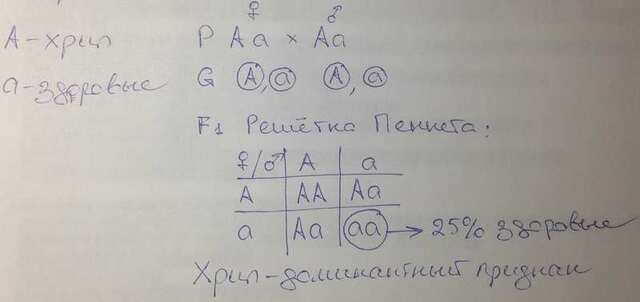 ♀ ♂
А - хрип P Aa × Aa
а - здоровые G A, a A, a
F1 Решётка Пеннета:
♀/♂ A a
A AA Aa
a Aa aa → 25% здоровые
Хрип - доминантный признак